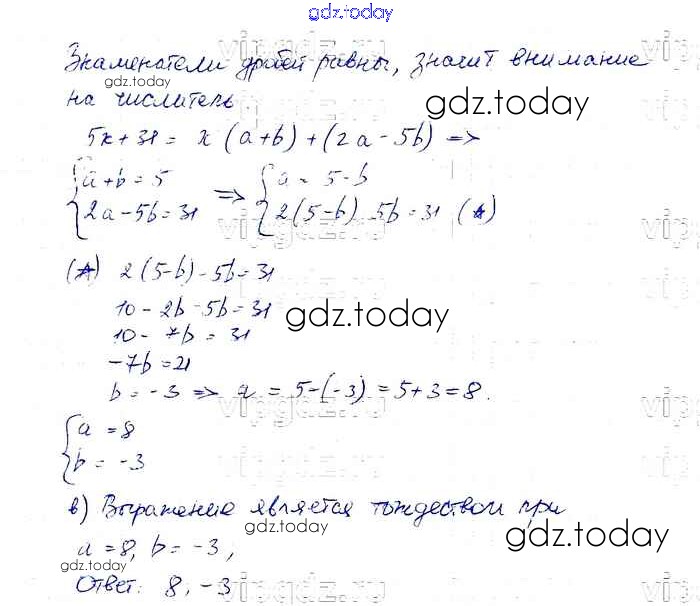 gdz.today
Знаменатели дробей равны, значит внимание
на числитель
5x + 31 = x (a+b) + (2a - 5b) =>
{ a + b = 5 => { a = 5 - b
{ 2a - 5b = 31 { 2(5-b) - 5b = 31 (*)
(*) 2(5-b) - 5b = 31
10 - 2b - 5b = 31
10 - 7b = 31
-7b = 21
b = -3 => a = 5-(-3) = 5+3 = 8.
{ a = 8
{ b = -3
в) Выражение является тождеством при
a = 8, b = -3,
Ответ: 8, -3
gdz.today
gdz.today
gdz.today
gdz.today
gdz.today
gdz.today
vipgdz.ru